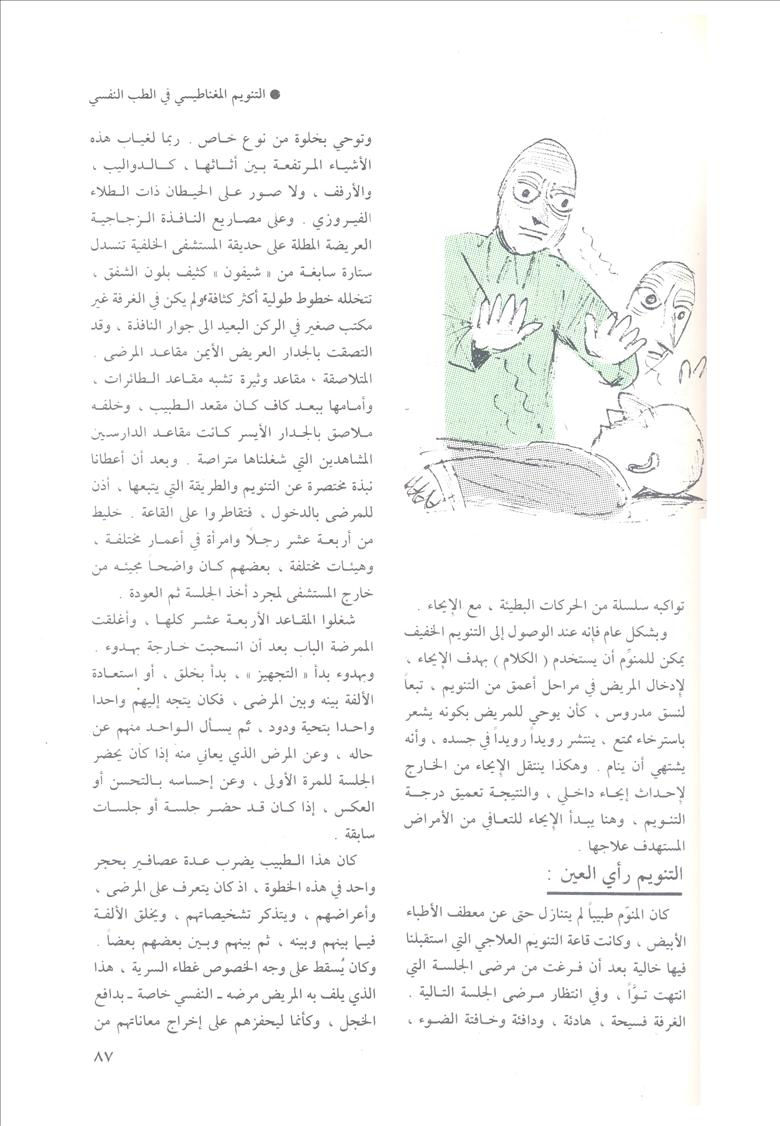 ● التنويم المغناطيسي في الطب النفسي
تواكبه سلسلة من الحركات البطيئة ، مع الإيحاء .
وبشكل عام فإنه عند الوصول إلى التنويم الخفيف
يمكن للمنوِّم أن يستخدم ( الكلام ) بهدف الإيحاء ،
لإدخال المريض في مراحل أعمق من التنويم ، تبعاً
لنسق مدروس ، كأن يوحي للمريض بكونه يشعر
باسترخاء ممتع ، ينتشر رويداً رويداً في جسده ، وأنه
يشتهي أن ينام . وهكذا ينتقل الإيحاء من الخارج
لإحداث إيحاء داخلي ، والنتيجة تعميق درجة
التنويم ، وهنا يبدأ الإيحاء للتعافي من الأمراض
المستهدف علاجها .
التنويم رأي العين :
كان المنوّم طبيباً لم يتنازل حتى عن معطف الأطباء
الأبيض ، وكانت قاعة التنويم العلاجي التي استقبلنا
فيها خالية بعد أن فرغت من مرضى الجلسة التي
انتهت توَّاً ، وفي انتظار مرضى الجلسة التالية .
الغرفة فسيحة ، هادئة ، ودافئة وخافتة الضوء ،
وتوحي بخلوة من نوع خاص . ربما لغياب هذه
الأشياء المرتفعة بين أثاثها ، كالدواليب ،
والأرفف ، ولا صور على الحيطان ذات الطلاء
الفيروزي . وعلى مصاريع النافذة الزجاجية
العريضة المطلة على حديقة المستشفى الخلفية تنسدل
ستارة سابغة من « شيفون » كثيف بلون الشفق ،
تتخلله خطوط طولية أكثر كثافة، ولم يكن في الغرفة غير
مكتب صغير في الركن البعيد الى جوار النافذة ، وقد
التصقت بالجدار العريض الأيمن مقاعد المرضى .
المتلاصقة ، مقاعد وثيرة تشبه مقاعد الطائرات ،
وأمامها ببعد كاف كان مقعد الطبيب ، وخلفه
ملاصق بالجدار الأيسر كانت مقاعد الدارسين
المشاهدين التي شغلناها متراصة . وبعد أن أعطانا
نبذة مختصرة عن التنويم والطريقة التي يتبعها ، أذن
للمرضى بالدخول ، فتقاطروا على القاعة . خليط
من أربعة عشر رجلاً وامرأة في أعمار مختلفة ،
وهيئات مختلفة ، بعضهم كان واضحاً مجيئه من
خارج المستشفى لمجرد أخذ الجلسة ثم العودة .
شغلوا المقاعد الأربعة عشر كلها ، وأغلقت
الممرضة الباب بعد أن انسحبت خارجة بهدوء .
وبهدوء بدأ « التجهيز » ، بدأ بخلق ، أو استعادة
الألفة بينه وبين المرضى ، فكان يتجه إليهم واحدا
واحدا بتحية ودود ، ثم يسأل الواحد منهم عن
حاله ، وعن المرض الذي يعاني منه إذا كان يحضر
الجلسة للمرة الأولى ، وعن إحساسه بالتحسن أو
العكس ، إذا كان قد حضر جلسة أو جلسات
سابقة .
كان هذا الطبيب يضرب عدة عصافير بحجر
واحد في هذه الخطوة ، اذ كان يتعرف على المرضى ،
وأعراضهم ، ويتذكر تشخيصاتهم ، ويخلق الألفة
فيما بينهم وبينه ، ثم بينهم وبين بعضهم بعضاً .
وكان يُسقط على وجه الخصوص غطاء السرية ، هذا
الذي يلف به المريض مرضه ـ النفسي خاصة ـ بدافع
الخجل ، وكأنما ليحفزهم على إخراج معاناتهم من
٨٧